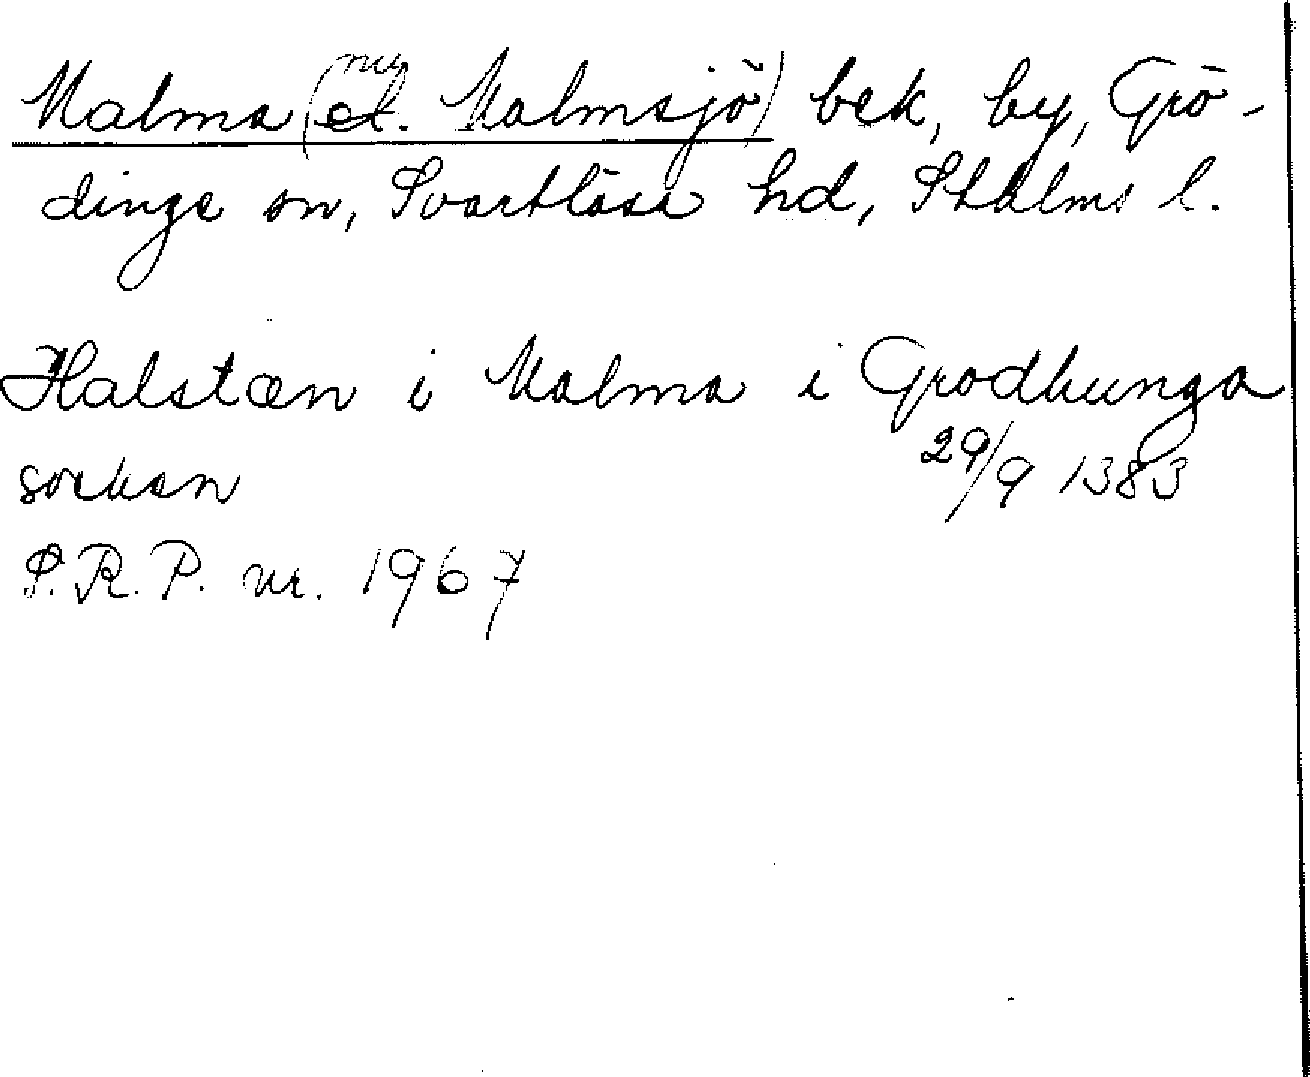 Malma (nu Malmsjö) bek, by, Grö-
dinge sn, Svartlösa hd, Sthlms l.
Halstæn i Malma i Grodhunga
socken 29/9 1383
S.R.P. nr. 1967